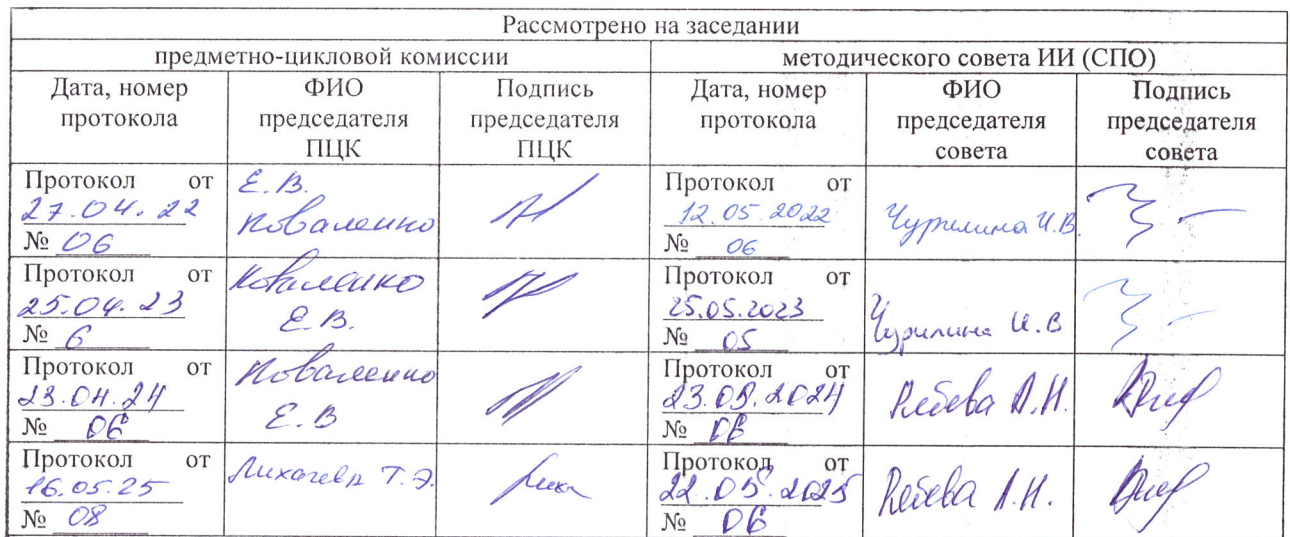 Рассмотрено на заседании
предметно-цикловой комиссии методического совета ИИ (СПО)
Дата, номер протокола ФИО председателя ПЦК Подпись председателя ПЦК Дата, номер протокола ФИО председателя совета Подпись председателя совета
Протокол от 27.04.22 № 06 Е.В. Коваленко Протокол от 12.05.2022 № 06 Чурилина И.В.
Протокол от 25.04.23 № 6 Коваленко Е.В. Протокол от 25.05.2023 № 05 Чурилина И.В
Протокол от 23.04.24 № 06 Коваленко Е.В Протокол от 23.05.2024 № 06
Протокол от 16.05.25 № 08 Лихачева Т.Э. Протокол от 22.05.2025 № 06